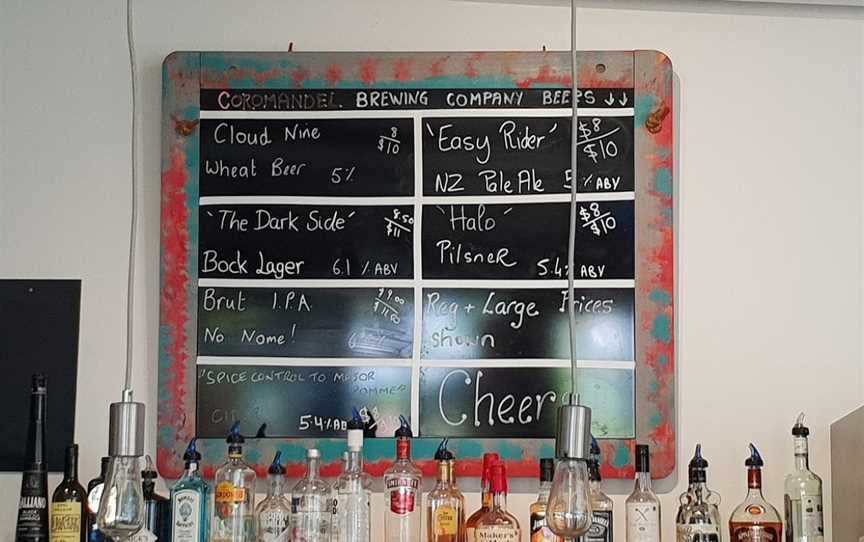 COROMANDEL BREWING COMPANY BEERS ↓↓
Cloud Nine 8
$10
Wheat Beer 5%
'Easy Rider' $8
$10
NZ Pale Ale 5% ABV
'The Dark Side' 8.50
$11
Bock Lager 6.1 % ABV
'Halo' $8
$10
Pilsner 5.4% ABV
Brut I.P.A $9.00
No Nome!
Reg + Large Prices
shown
"SPICE CONTROL TO MAJOR
POMMEE
5.4%
Cheers
SMIRNOFF
Maker's